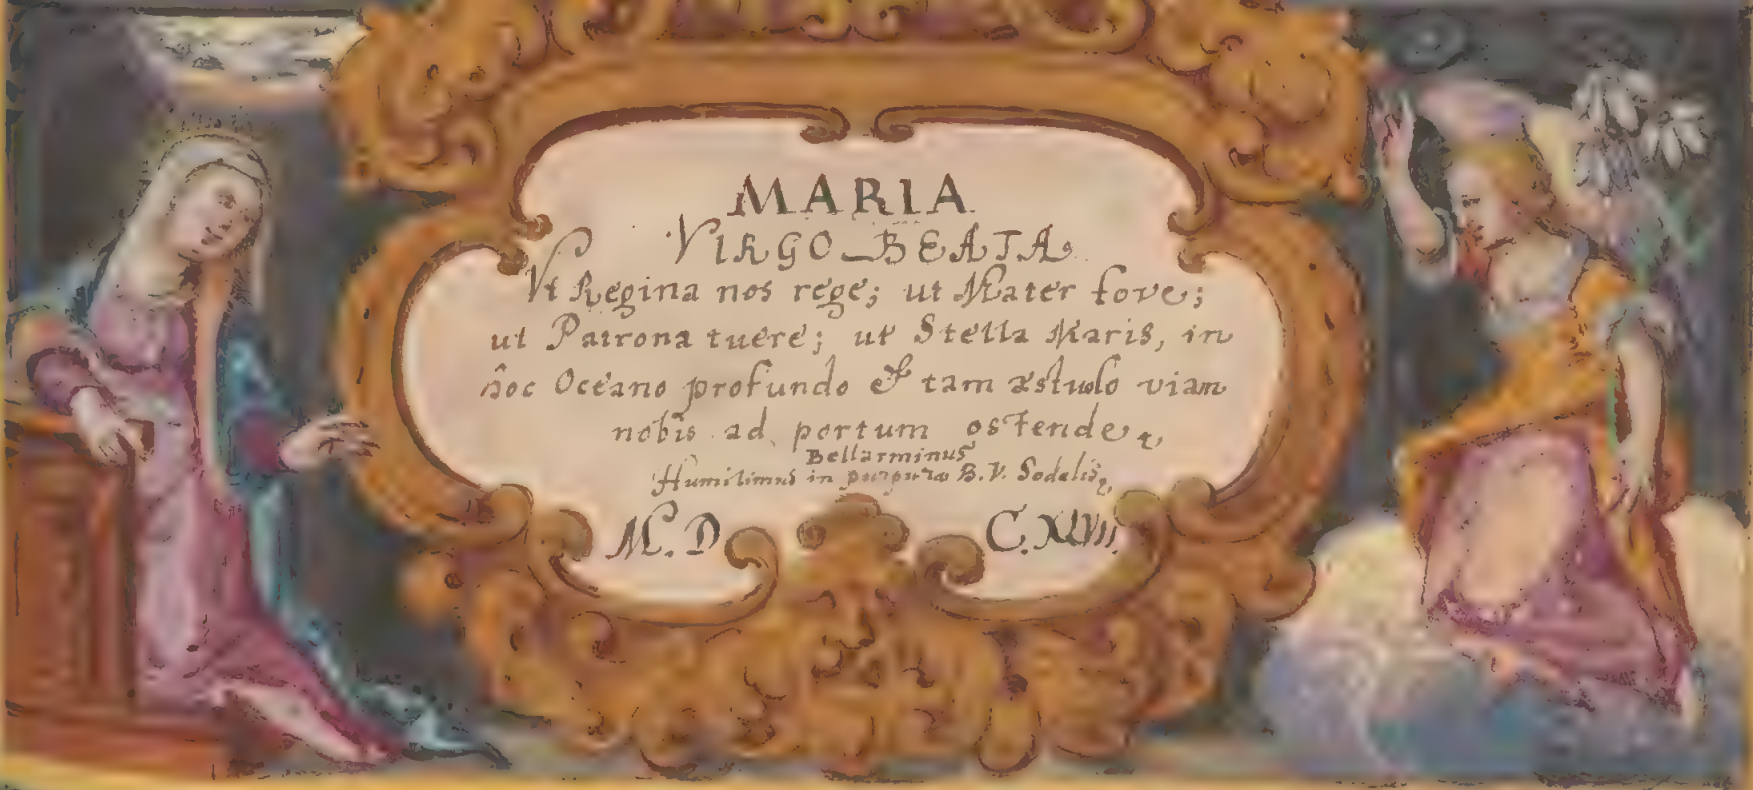 MARIA
VIRGO BEATA
Vt Regina nos rege; ut Mater fove;
ut Patrona tuere; ut Stella Maris, in
hoc Oceano profundo & tam æstuoso viam
nobis ad portum ostende.
Bellarminus
Humilimus in purpura B. V. Sodalis,
M. D C.